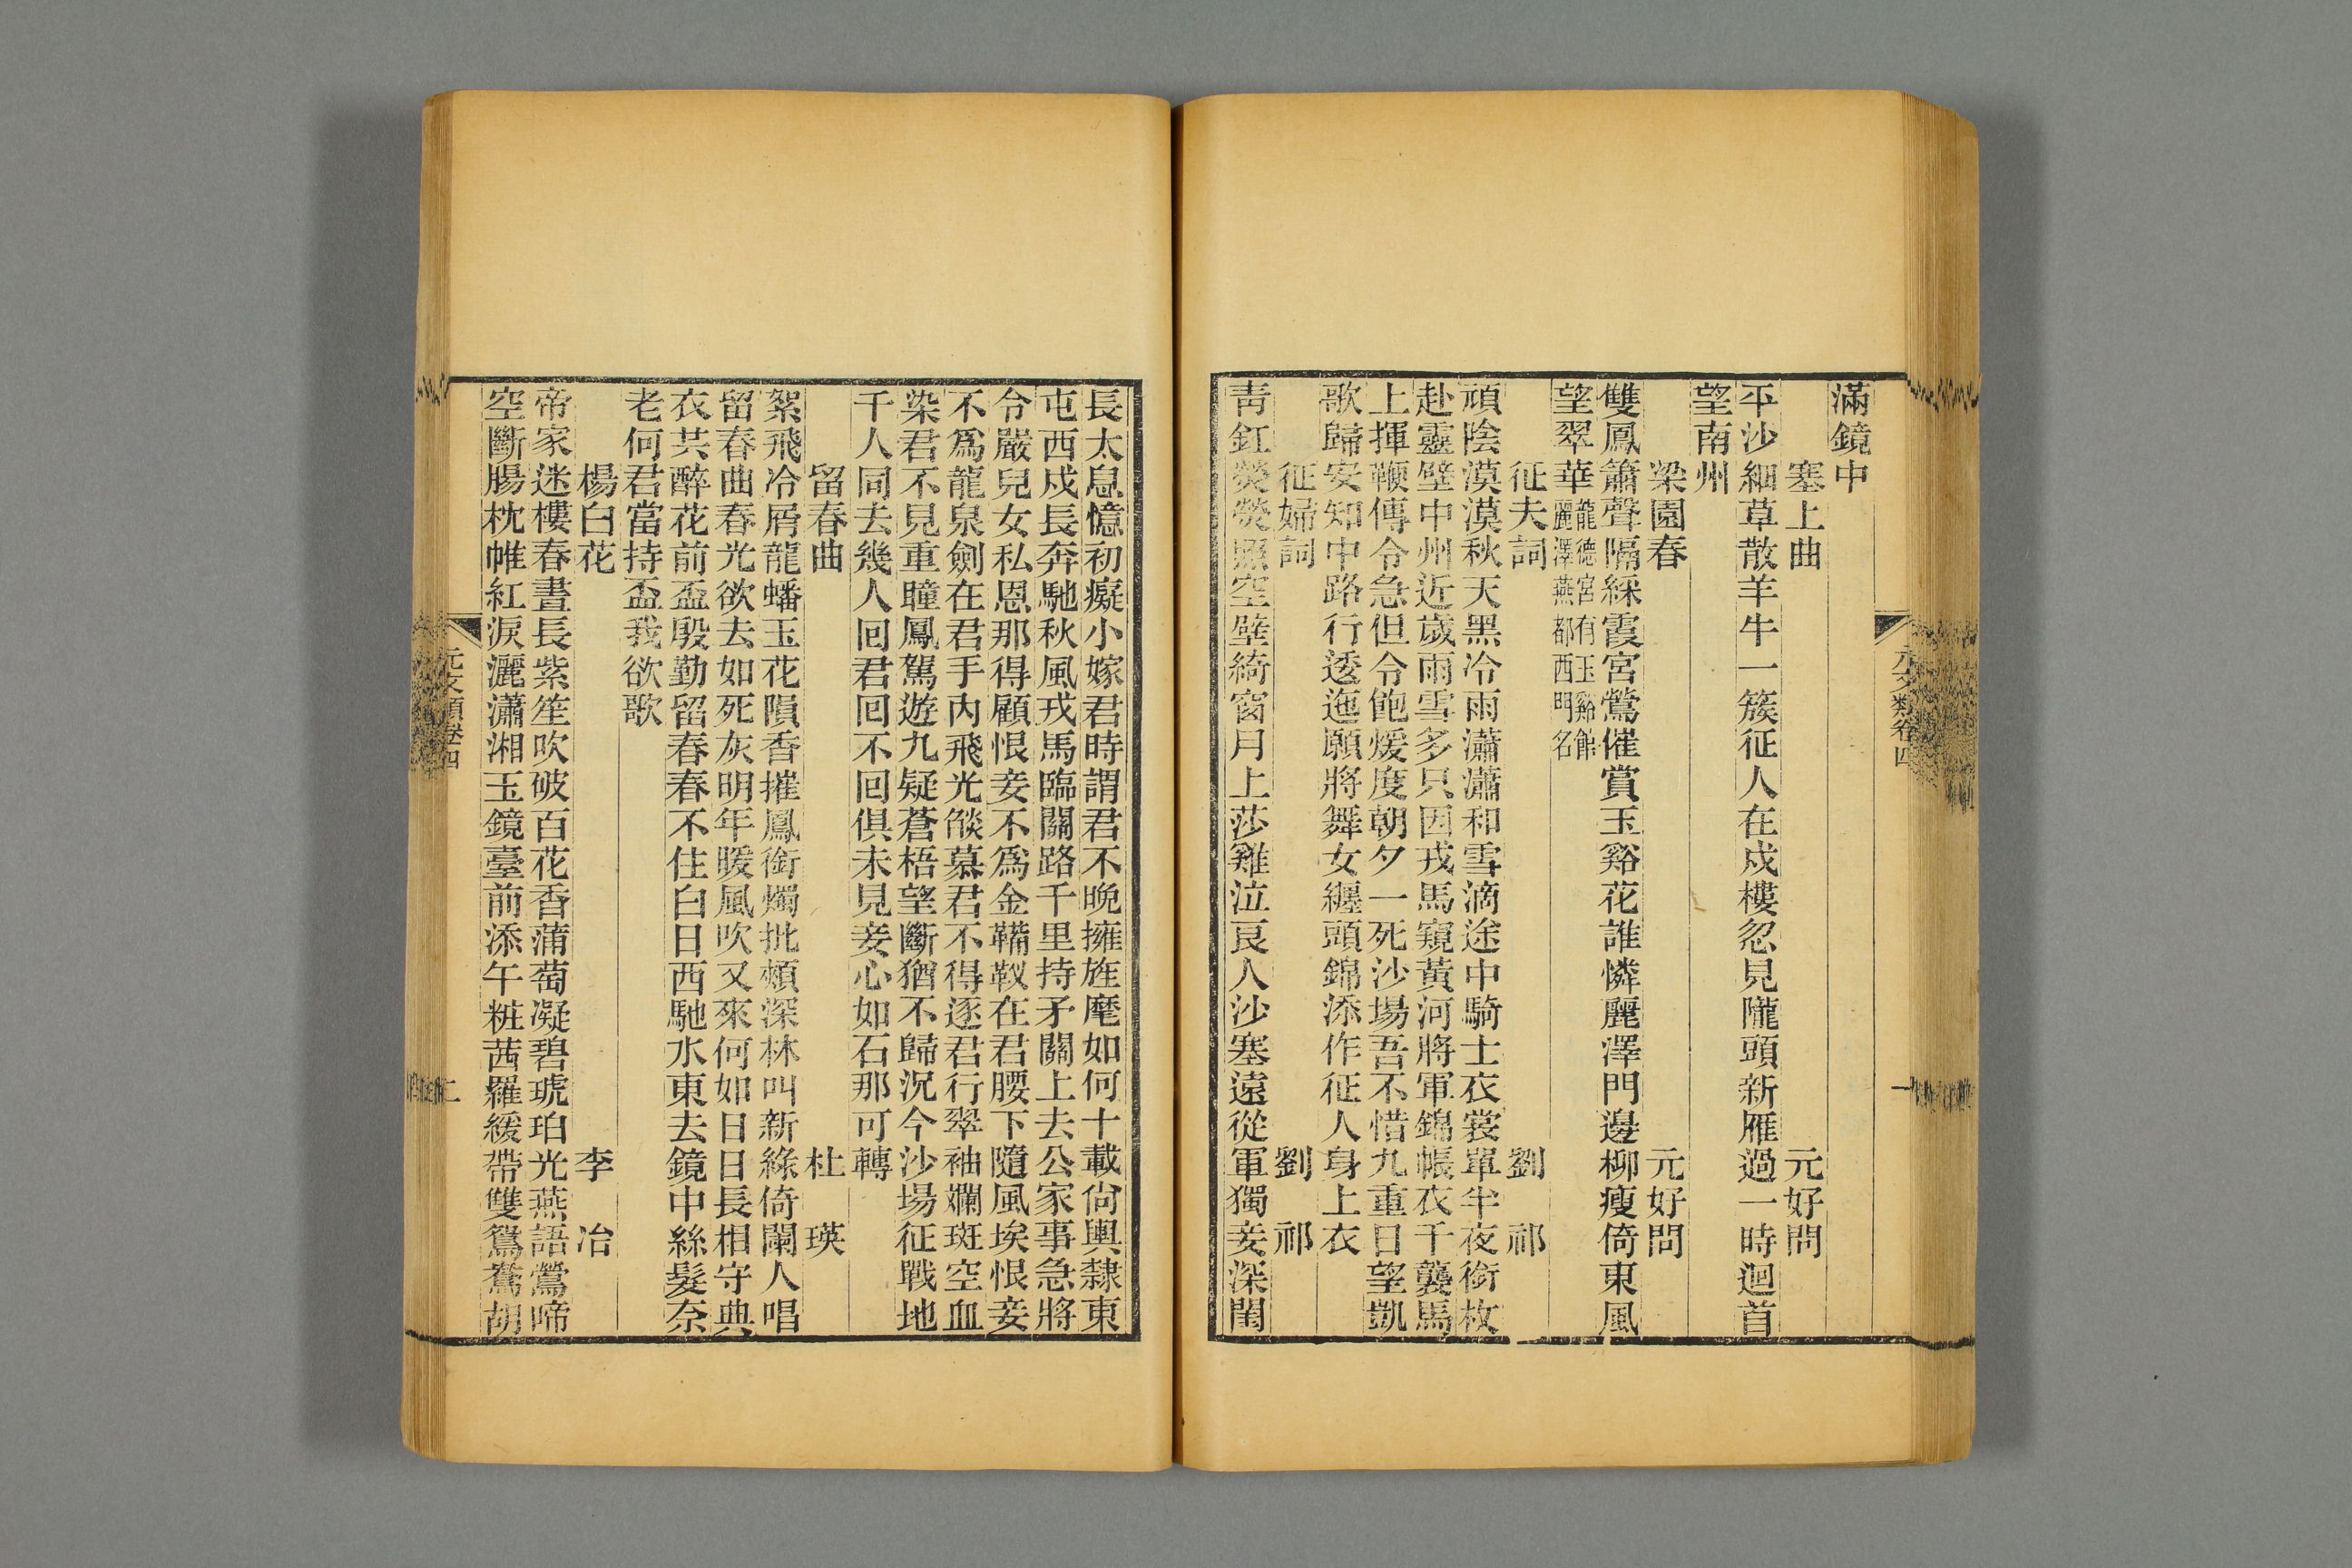 滿鏡中
塞上曲 元好問
平沙細草散羊牛一簇征人在戍樓忽見隴頭新雁過一時迴首
望南州
梁園春 元好問
雙鳳簫聲隔綵霞宮鶯催賞玉谿花誰憐麗澤門邊柳瘦倚東風
望翠華龍德宮有玉谿館
麗澤燕都西門名
征夫詞 劉祁
頑陰漠漠秋天黑冷雨瀟瀟和雪滴途中騎士衣裳單半夜銜枚
赴靈壁中州近歲雨雪多只因戎馬窺黃河將軍錦帳衣千襲馬
上揮鞭傳令急但令飽煖度朝夕一死沙場吾不惜九重日望凱
歌歸安知中路行逶迤願將舞女纏頭錦添作征人身上衣
征婦詞 劉祁
青釭熒熒照空壁綺窗月上莎雞泣良人沙塞遠從軍獨妾深閨
長太息憶初癡小嫁君時謂君不晚擁旌麾如何十載尙輿隸東
屯西戍長奔馳秋風戎馬臨關路千里持矛關上去公家事急將
令嚴兒女私恩那得顧恨妾不爲金鞲靫在君腰下隨風埃恨妾
不爲龍泉劍在君手內飛光燄慕君不得逐君行翠袖斕斑空血
染君不見重瞳鳳駕遊九疑蒼梧望斷猶不歸況今沙場征戰地
千人同去幾人回君回不回俱未見妾心如石那可轉
留春曲 杜瑛
絮飛冷屑龍蟠玉花隕香摧鳳銜燭批頰深林叫新綠倚闌人唱
留春曲春光欲去如死灰明年暖風吹又來何如日日長相守典
衣共醉花前盃殷勤留春春不住白日西馳水東去鏡中絲髮奈
老何君當持盃我欲歌
楊白花 李冶
帝家迷樓春晝長紫笙吹破百花香蒲萄凝碧琥珀光燕語鶯啼
空斷腸枕帷紅淚灑瀟湘玉鏡臺前添午粧茜羅緩帶雙鴛鴦胡
元文類卷四
一
元文類卷四
二